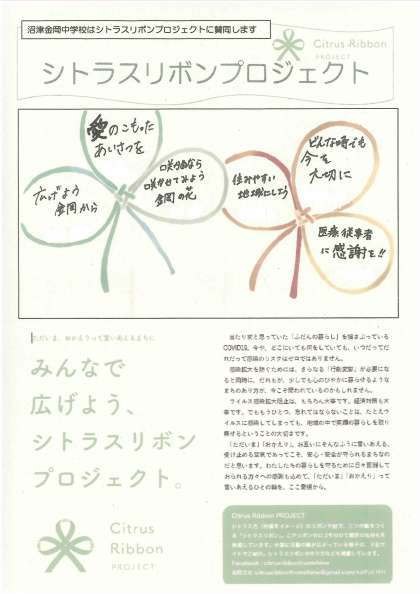 沼津金岡中学校はシトラスリボンプロジェクトに賛同します
Citrus Ribbon
PROJECT
シトラスリボンプロジェクト
愛のこもった
あいさつを
咲かぬなら
咲かせてみよう
金岡の花
広げよう
金岡から
どんな時でも
今を
大切に
住みやすい
地域にしよう
医療従事者
に感謝を!!
ただいま、おかえりって言いあえるまちに
みんなで
広げよう、
シトラスリボン
プロジェクト。
Citrus
Ribbon
PROJECT
当たり前と思っていた「ふだんの暮らし」を揺さぶっている
COVID19。今や、どこにいても何をしていても、いつだってだ
れだって感染のリスクはゼロではありません。
感染拡大を防ぐためには、さらなる「行動変容」が必要になる
と同時に、だれもが、少しでも心のびやかに暮らせるような
まちのあり方が、今こそ問われているのかもしれません。
ウイルス感染拡大阻止は、もちろん大事です。経済対策も大
事です。でももうひとつ、忘れてはならないことは、たとえウ
イルスに感染してしまっても、地域の中で笑顔の暮らしを取り
戻せるということの大切さです。
「ただいま」「おかえり」。お互いにそんなふうに言いあえる、
受け止める空気であってこそ、安心・安全が守られるまちなの
だと思います。わたしたちの暮らしを守るために日々奮闘して
おられる方々への感謝も込めて、「ただいま」「おかえり」って
言いあえるひとの輪を、ここ愛媛から。
Citrus Ribbon PROJECT